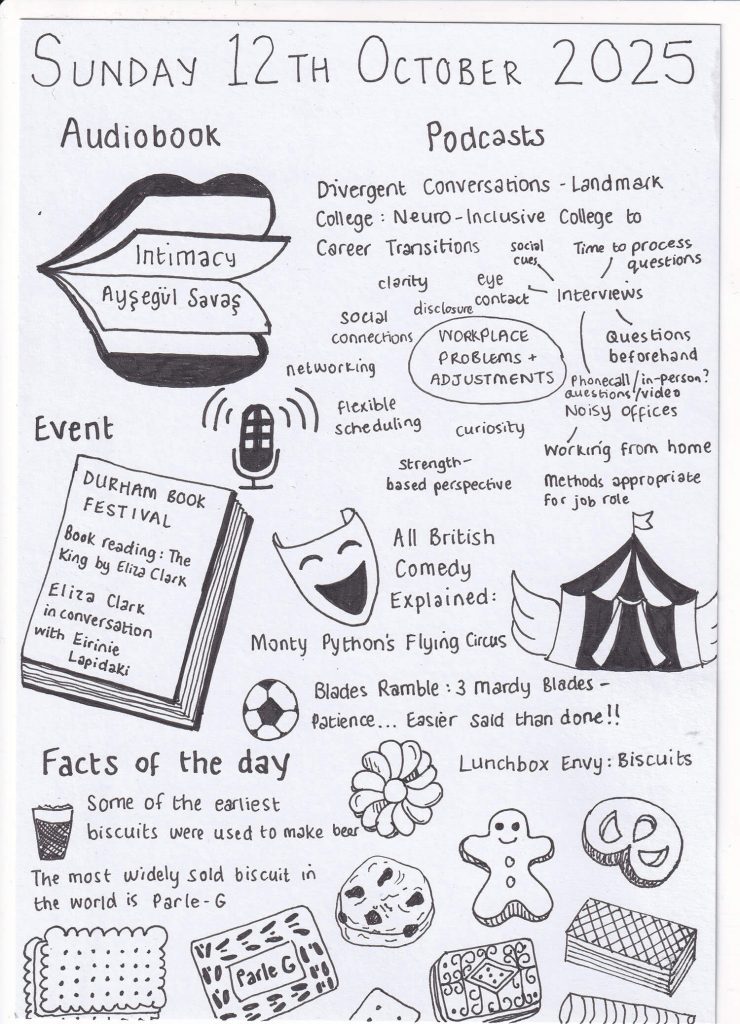 SUNDAY 12TH OCTOBER 2025
Audiobook
Intimacy
Ayşegül Savaş
Podcasts
Divergent Conversations - Landmark
College : Neuro-Inclusive College to
Career Transitions
social
cues
Time to process
questions
clarity
eye
contact
Interviews
disclosure
social
connections
WORKPLACE
PROBLEMS +
ADJUSTMENTS
Questions
beforehand
networking
Phonecall/in-person?
questions/video
flexible
scheduling
Noisy offices
curiosity
Working from home
strength-
based perspective
Methods appropriate
for job role
Event
DURHAM BOOK
FESTIVAL
Book reading: The
King by Eliza Clark
Eliza Clark
in conversation
with Eirinie
Lapidaki
All British
Comedy
Explained:
Monty Python's Flying Circus
Blades Ramble : 3 Mardy Blades -
Patience... Easier said than done!!
Lunchbox Envy: Biscuits
Facts of the day
Some of the earliest
biscuits were used to make beer
The most widely sold biscuit in
the world is Parle-G
Parle G